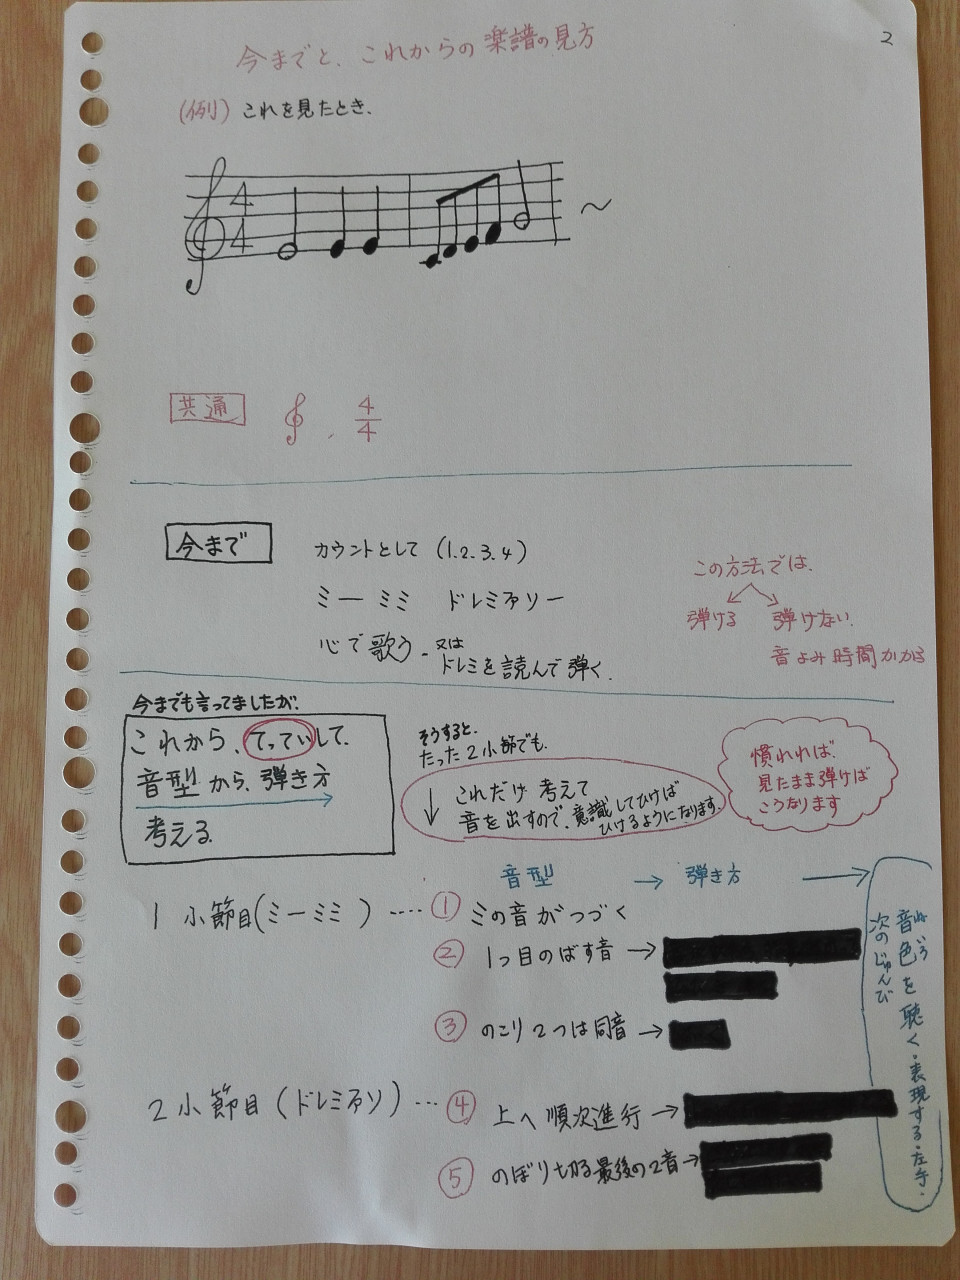 2
今までと、これからの楽譜の見方
(例) これを見たとき、
4
4
〜
共通
,
4
4
今まで
カウントとして (1.2.3.4)
ミー ミミ ドレミファソー
心で歌う 又は
ドレミを読んで弾く.
この方法では、
弾ける 弾けない.
音よみ時間かかる
今までも言ってましたが、
これから、てっていして、
音型から、弾き方
考える.
そうすると、
たった2小節でも、
↓
これだけ考えて
音を出すので、意識してひけば
ひけるようになります.
慣れれば、
見たまま弾けば
こうなります
音型 → 弾き方 →
1小節目(ミーミミ) ････ ① ミの音がつづく
② 1つ目のばす音 →
③ のこり2つは同音 →
2小節目 (ドレミファソ) ･･･ ④ 上へ順次進行 →
⑤ のぼり切る最後の2音→
音色を聴く・表現する・左手・
ねいろ
次のじゅんび